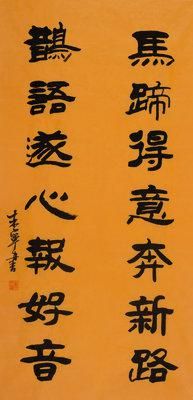 馬蹄得意奔新路
鵲語遂心報好音